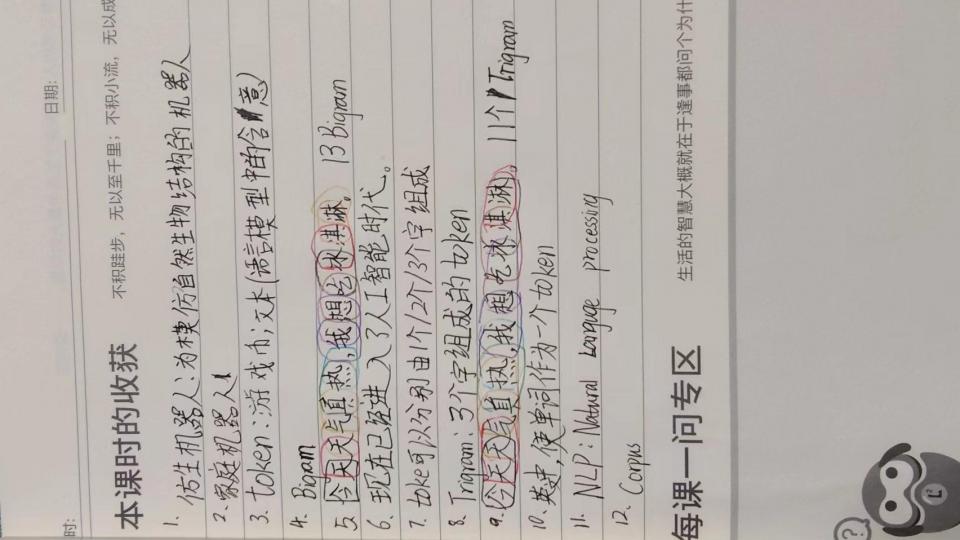 时:
日期:
本课时的收获
不积跬步，无以至千里；不积小流，无以成
1. 仿生机器人：为模仿自然生物结构的机器人
2. 家庭机器人
3. token：游戏币；文本(语言模型中的含意)
4. Bigram
5. 今天天气真热，我想吃冰淇淋。 13 Bigram
6. 现在已经进入了人工智能时代。
7. toke可以分别由1个/2个/3个字组成
8. Trigram：3个字组成的token
9. 今天天气真热，我想吃冰淇淋。 11个Trigram
10. 英中，使单词作为一个token
11. NLP：Natural Language processing
12. Corpus
每课一问专区
生活的智慧大概就在于逢事都问个为什